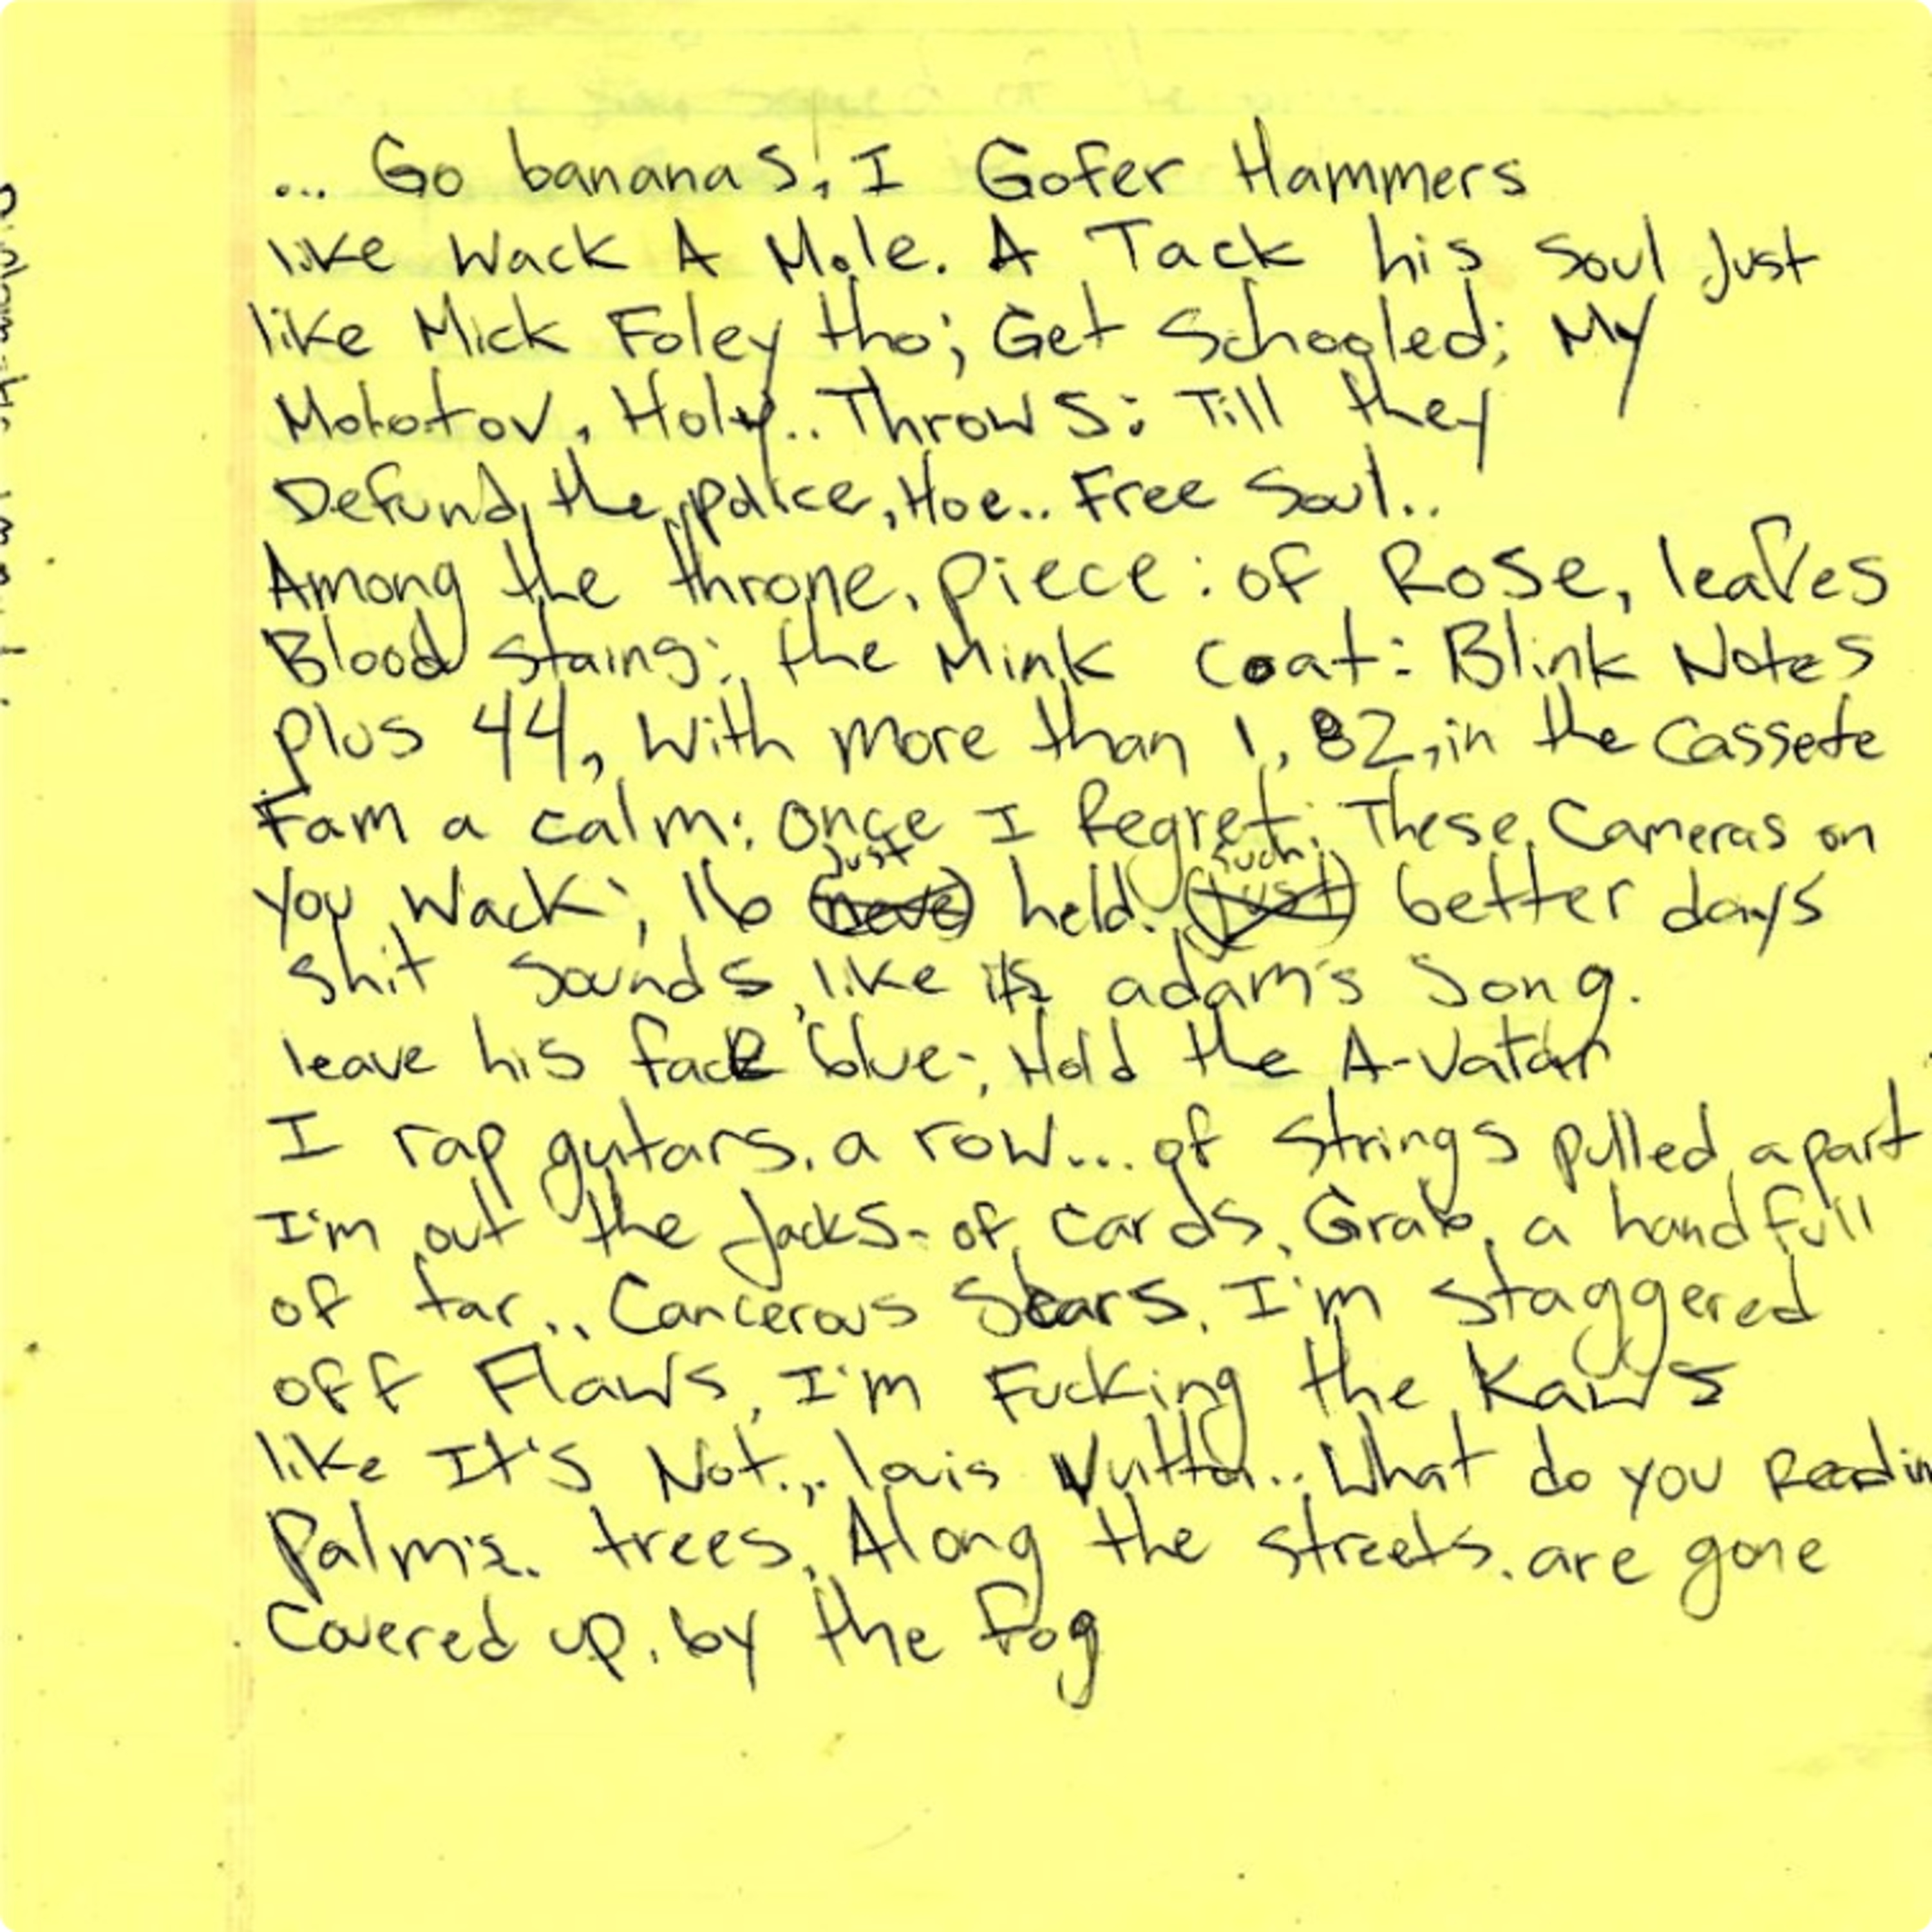 ... Go bananas, I Gofer Hammers
like Wack A Mole. A Tack his Soul Just
like Mick Foley tho; Get Schooled; My
Molotov, Holy.. Throws: Till they
Defund the police, Hoe.. Free Soul..
Among the throne, piece: of Rose, leafes
Blood staing: the Mink Coat: Blink Notes
plus 44, With more than 1, 82, in the Cassete
Fam a calm: Once I Regret: These Cameras on
you Wack; 16 just held. such better days
shit sounds, like its adam's song.
leave his face blue; Hold the A-vatar
I rap gutars. a row... of strings pulled apart
I'm out the Jacks- of cards, Grab, a handfull
of tar.. Cancerous Scars, I'm staggered
off Flaws, I'm Fucking the Kaws
like It's Not... louis Vutton.. What do you Readin
Palm's. trees, Along the streets. are gone
Covered up. by the fog